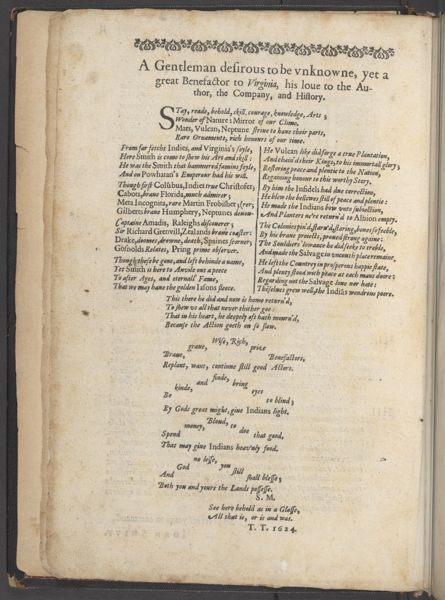 A Gentleman desirous to be vnknowne, yet a
great Benefactor to Virginia, his loue to the Au-
thor, the Company, and History.
STay, reade, behold, skill, courage, knowledge, Arts;
Wonder of Nature: Mirror of our Clime.
Mars, Vulcan, Neptune striue to haue their parts,
Rare Ornaments, rich honours of our time.
From far fetcht Indies, and Virginia's soyle,
Here Smith is come to shew his Art and skill:
He was the Smith that hammered famins foyle,
And on Powhatan's Emperour had his will.
Though first Colûbus, Indies true Christofer;
Cabots, braue Florida, much admirer;
Meta Incognita, rare Martin Frobisher;
Gilberts braue Humphery, Neptunes deuou-
Captaine Amadis, Raleighs discouerer;
Sir Richard Grenvill, Zealands braue coaster:
Drake, doomes, drowne, death, Spaines scorner;
Gosnolds Relates, Pring prime obseruer.
Though these be gone, and left behinde a name,
Yet Smith is here to Anvile out a peece
To after Ages, and eternall Fame,
That we may haue the golden Iasons fleece.
He Vulcan like did forge a true Plantation,
And chain'd their Kings, to his immortall glory;
Restoring peace and plentie to the Nation,
Regaining honour to this worthy Story.
By him the Infidels had due correction,
He blew the bellowes still of peace and plentie:
He made the Indians bow vnto subiection,
And Planters ne're return'd to Albion empty.
The Colonies pin'd, staru'd, staring, bones so feeble,
By his braue proiects, proued strong againe:
The Souldiers 'lowance he did seeke to treble,
And made the Salvage in vncouth place remaine.
He left the Countrey in prosperous happie state,
And plenty stood with peace at each mans doore:
Regarding not the Salvage loue nor hate:
Themselues grew well, the Indiās wondrous poore.
This there he did and now is home return'd,
To shew vs all that never thither goe:
That in his heart, he deepely oft hath mourn'd,
Because the Action goeth on so slow.
Braue, graue, Wise, Rich, prize Benefactors,
Replant, want, continue still good Actors.
Be kinde, and finde, bring eyes to blind;
By Gods great might, giue Indians light.
Spend money, Bloud, to doe that good,
That may giue Indians heav'nly food.
And God no lesse, you still shall blesse;
Both you and yours the Lands possesse.
S. M.
See here behold as in a Glasse,
All that is, or is and was.
T. T. 1624.